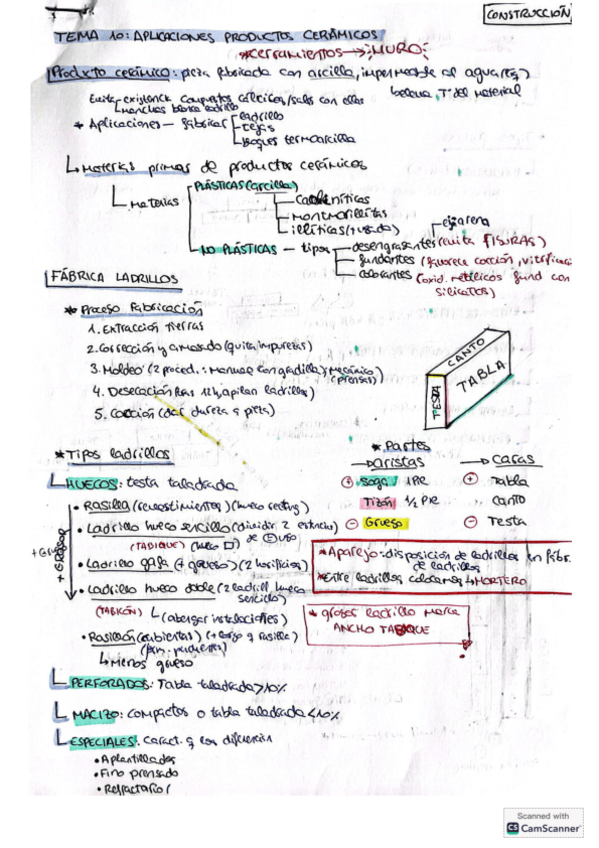 CONSTRUCCIÓN
TEMA 10: APLICACIONES PRODUCTOS CERÁMICOS
*Cerramientos → ¡MURO!
Producto cerámico: pieza fabricada con arcilla, impermeable al agua
T° del material
* Aplicaciones — fabricar ladrillo
tejas
Bloques termoarcilla
Materias primas de productos cerámicos
Materias
PLÁSTICAS (arcilla)
Caoliníticas
montmorillitas
illíticas
NO PLÁSTICAS — tipos — desengrasantes (evita FISURAS)
ej: arena
fundentes (favorece cocción, vitrificaci
colorantes (oxid. metálicos fund con
silicatos)
FÁBRICA LADRILLOS
* Proceso Fabricación
1. Extracción tierras
2. Corrección y amasado (quita impurezas)
3. Moldeo (2 proced.: manual con gradilla y mecánico
(prensas)
4. Desecación (tras 12h, apilan ladrillos)
5. Cocción (dar dureza a pieza)
CANTO
TABLA
TESTA
* Tipos ladrillos
HUECOS: testa taladrada
• Rasilla (revestimientos) (hueco rectang)
• Ladrillo hueco sencillo (dividir 2 estancias
(TABIQUE) (hueco □) de uso
• Ladrillo gafa (+ grueso) (2 horificios)
• Ladrillo hueco doble (2 ladrill hueco
sencillo)
(TABICÓN) (albergar instalaciones)
• Rasillón (cubiertas) (+ largo q rasilla)
Menos grueso
+ Grosor
* Partes
→ aristas → Caras
+ Soga: 1 PIE + Tabla
Tizón 1/2 PIE Canto
− Grueso − Testa
* Aparejo: disposición de ladrillos en fábr.
de ladrillos
* Entre ladrillos colocamos → MORTERO
* grosor ladrillo marca
ANCHO TABIQUE
PERFORADOS: Tabla taladrada >10%
MACIZO: compactos o tabla taladrada <10%
ESPECIALES: caract. q los diferencian
• Aplantillados
• Fino prensado
• Refractario
Scanned with
CS CamScanner